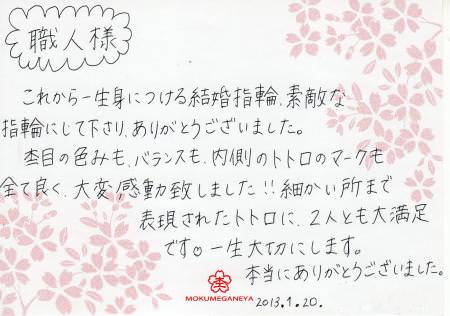 職人様
これから一生身につける結婚指輪、素敵な
指輪にして下さり、ありがとうございました。
杢目の色みも、バランスも、内側のトトロのマークも
全て良く、大変感動致しました!!細かい所まで
表現されたトトロに、2人とも大満足
です♡一生大切にします。
本当にありがとうございました。
杢
MOKUMEGANEYA
2013.1.20.